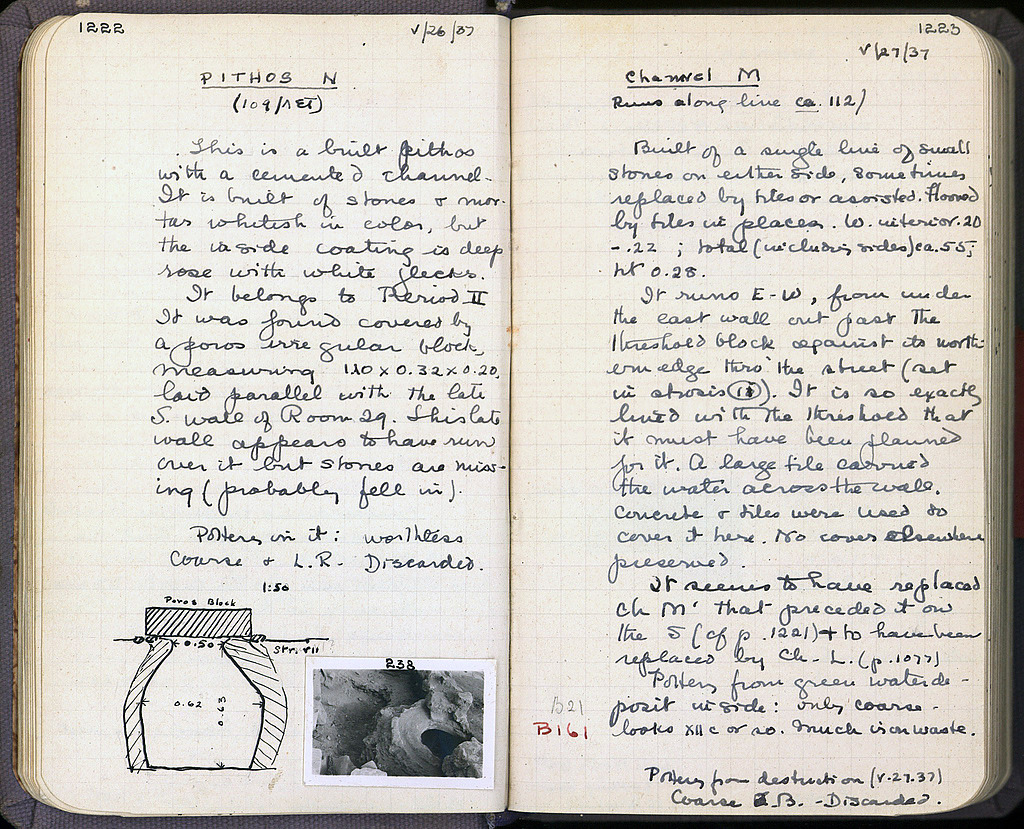 1222
V/26/37
PITHOS N
(109/ΛΣΤ)
This is a built pithos
with a cemented channel.
It is built of stones & mor-
tar whitish in color, but
the inside coating is deep
rose with white flecks.
It belongs to Period II
It was found covered by
a poros irregular block,
measuring 1.10 x 0.32 x 0.20,
laid parallel with the late
S. wall of Room 29. This late
wall appears to have run
over it but stones are miss-
ing (probably fell in).
Pottery in it: worthless
Coarse & L.R. Discarded.
1:50
Poros Block
0.50
Str. VII
0.62
0.63
238
1223
V/27/37
Channel M
Runs along line ca. 112/
Built of a single line of small
stones on either side, sometimes
replaced by tiles or assorted. Floored
by tiles in places. W. interior .20
- .22 ; total (including sides) ca .55;
ht 0.28.
It runs E-W, from under
the east wall out past the
threshold block against its north-
ern edge thro' the street (set
in strosis II). It is so exactly
lined with the threshold that
it must have been planned
for it. A large tile carried
the water across the wall.
Concrete & tiles were used to
cover it here. No cover elsewhere
preserved.
It seems to have replaced
Ch M' that preceded it on
the S (cf p. 1221) & to have been
replaced by Ch. L. (p. 1077)
Pottery from green water de-
posit inside: only coarse.
B21
looks XII c or so. Much iron waste.
B161
Pottery from destruction (V.27.37)
Coarse & B. - Discarded.